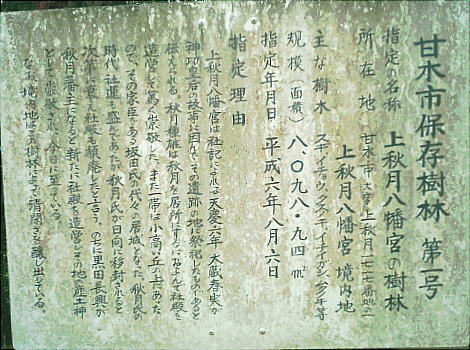 甘木市保存樹林 第一号
指定の名称 上秋月八幡宮の樹林
所在地 甘木市大字上秋月一七七番地の一
上秋月八幡宮 境内地
主な樹木 スギ、イチョウ、クスノキ、イチイガシ、ツバキ等
規模(面積) 八・〇九八・九四㎡
指定年月日 平成六年八月六日
指定理由
上秋月八幡宮は社記によれば天慶六年 大蔵春実が
神功皇后の故事に因んでその遺跡の地に祭祀したものであると
伝えられる。秋月種雄は秋月を居所とするにおよんで社殿を
造営して篤く崇敬した。また一帯は小高い丘の上であった
ので、その家臣である坂田氏の代々の居城となった。秋月氏の
時代、社運も盛んであったが秋月氏が日向に移封されると
次第に衰え社殿も頽廃したと言う。のちに黒田長興が
秋月藩主になると新たに社殿を造営しその地の産土神
として崇敬され今日に至っている。
なお、境内地は、樹林によって清閑さを醸し出している。